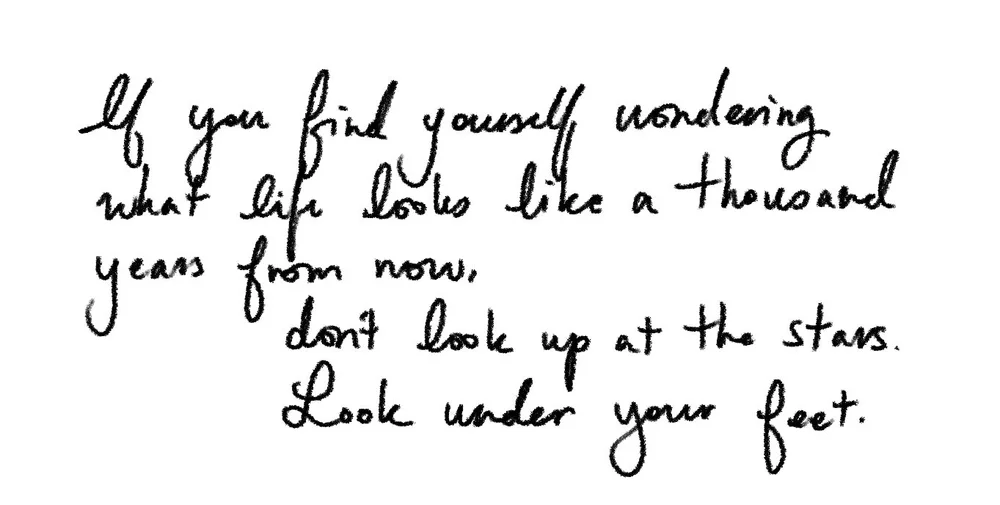 If you find yourself wondering
what life looks like a thousand
years from now,
don't look up at the stars.
Look under your feet.